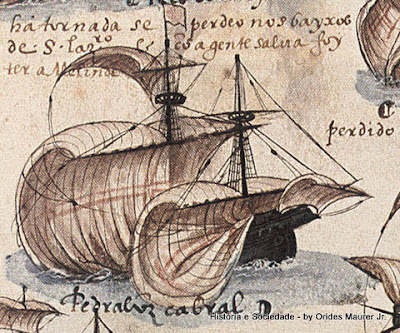 há tornada se perdeo nos bayxos
de S. lazro & a gente salua foy
ter a Melinde
perdido
Pedraluz cabral D
História e Sociedade - by Orides Maurer Jr.